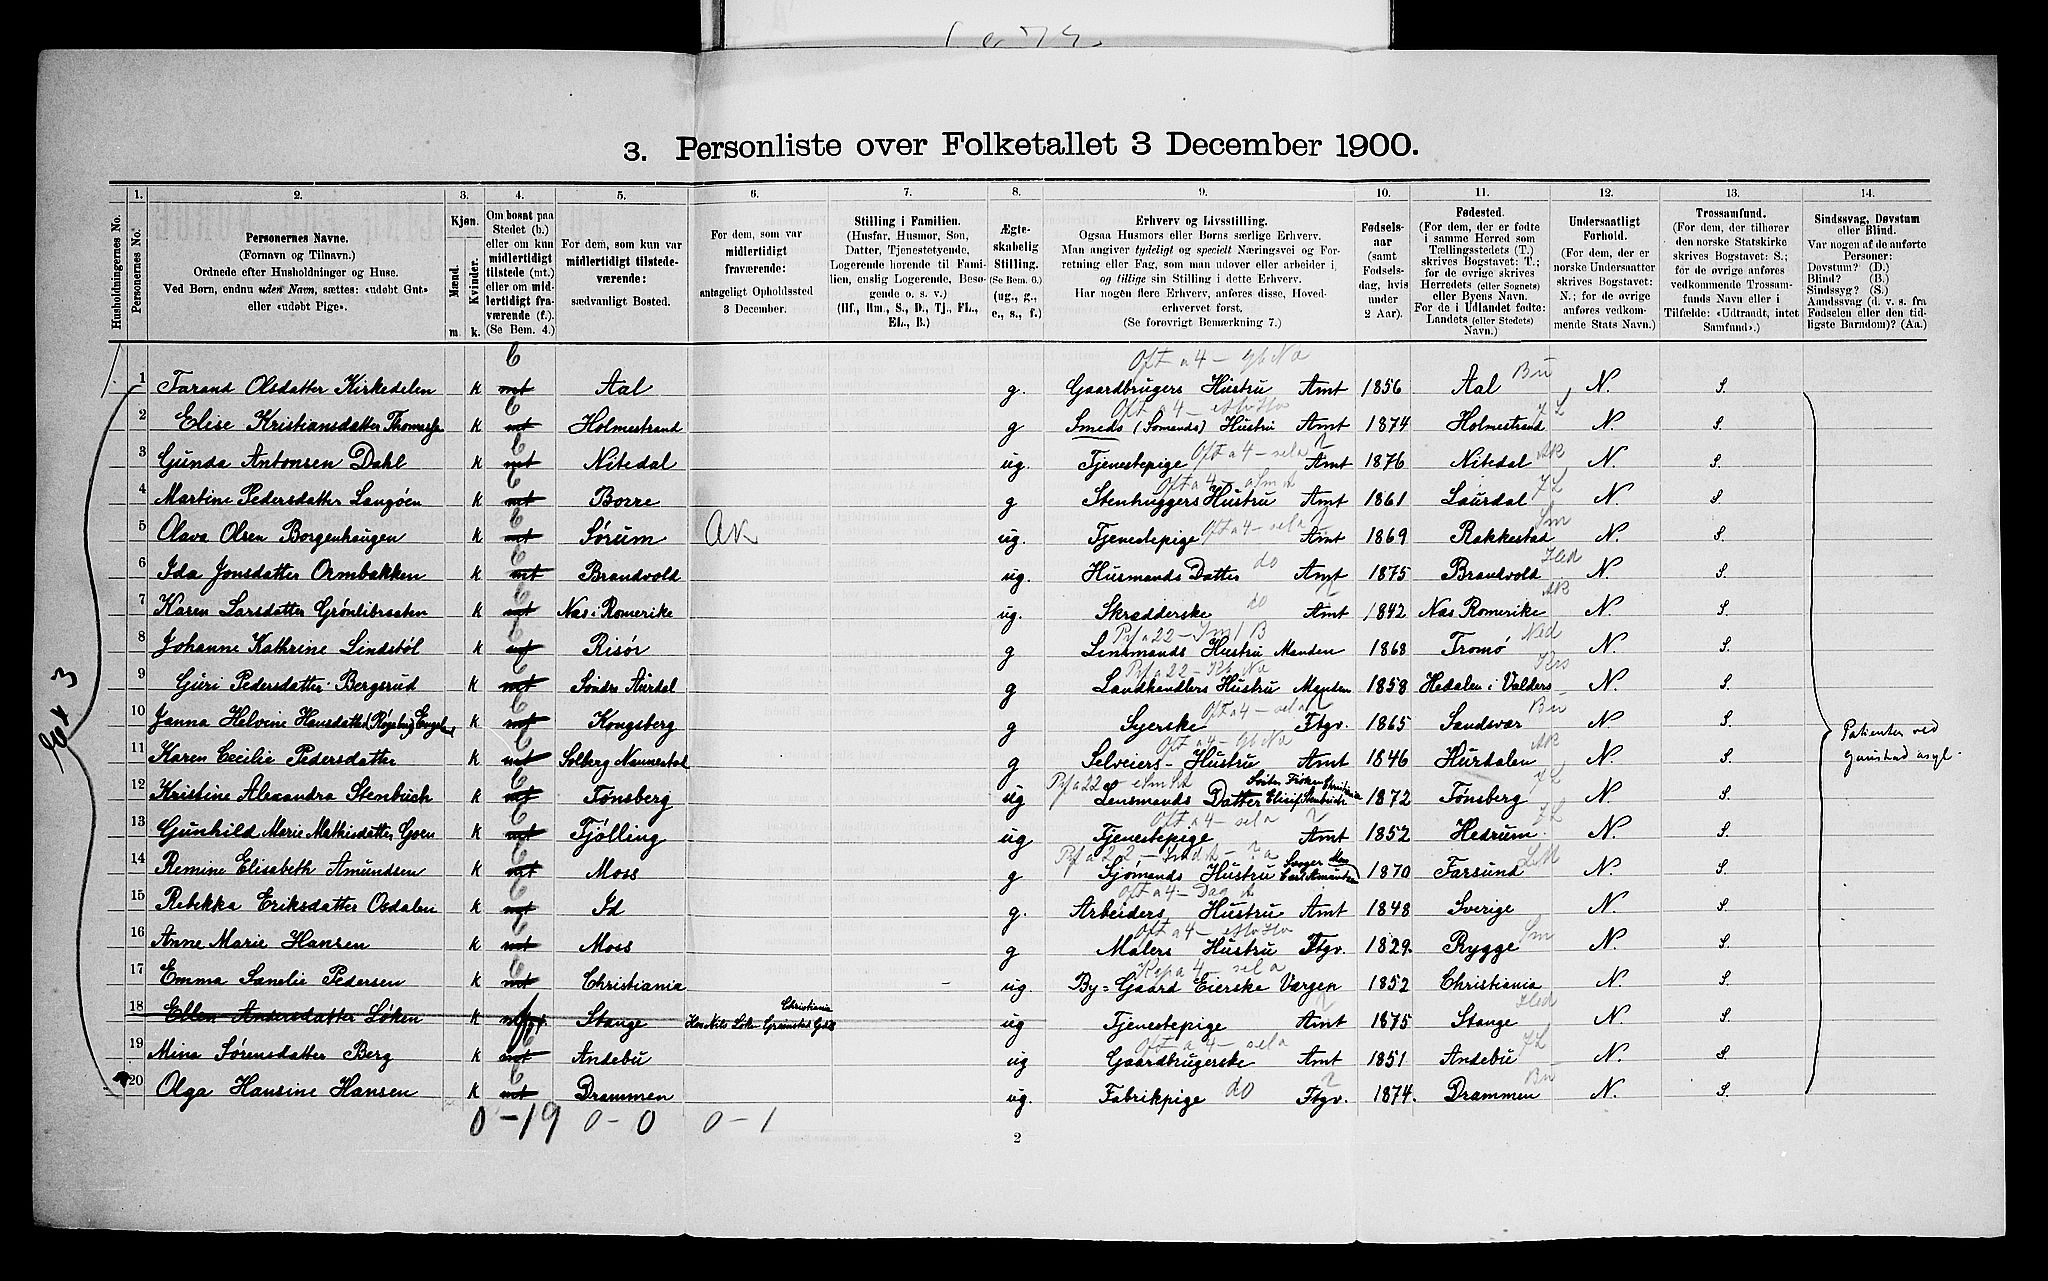 3. Personliste over Folketallet 3 December 1900.
Husholdningernes No.
1. Personernes No.
2. Personernes Navne.
(Fornavn og Tilnavn.)
Ordnede efter Husholdninger og Huse.
Ved Børn, endnu uden Navn, sættes: «udøbt Gut»
eller «udøbt Pige».
3. Kjøn.
Mænd. Kvinder.
m. k.
4. Om bosat paa
Stedet (b.)
eller om kun
midlertidigt
tilstede (mt.)
eller om mid-
lertidigt fra-
værende (f.).
(Se Bem. 4.)
5. For dem, som kun var
midlertidigt tilstede-
værende:
sædvanligt Bosted.
6. For dem, som var
midlertidigt
fraværende:
antageligt Opholdssted
3 December.
7. Stilling i Familien.
(Husfar, Husmor, Søn,
Datter, Tjenestetyende,
Logerende hørende til Fami-
lien, enslig Logerende, Besø-
gende o. s. v.)
(Hf., Hm., S., D., Tj., Fl.,
El., B.)
8. Ægte-
skabelig
Stilling.
(Se Bem. 6.)
(ug., g.,
e., s., f.)
9. Erhverv og Livsstilling.
Ogsaa Husmors eller Børns særlige Erhverv.
Man angiver tydeligt og specielt Næringsvei og For-
retning eller Fag, som man udover eller arbeider i,
og tillige sin Stilling i dette Erhverv.
Har nogen flere Erhverv, anføres disse, Hoved-
erhvervet først.
(Se forøvrigt Bemærkning 7.)
10. Fødsels-
aar
(samt
Fødsels-
dag, hvis
under
2 Aar).
11. Fødested.
(For dem, der er fødte
i samme Herred som
Tællingsstedets (T.)
skrives Bogstavet: T.;
for de øvrige skrives
Herredets (eller Sognets)
eller Byens Navn.
For de i Udlandet fødte:
Landets (eller Stedets)
Navn.)
12. Undersaatligt
Forhold.
(For dem, der er
norske Undersaatter
skrives Bogstavet:
N.; for de øvrige
anføres vedkom-
mende Stats Navn.)
13. Trossamfund.
(For dem, der tilhører
den norske Statskirke
skrives Bogstavet: S.;
for de øvrige anføres
vedkommende Trossam-
funds Navn eller i
Tilfælde: «Udtraadt, intet
Samfund».)
14. Sindssvag, Døvstum
eller Blind.
Var nogen af de anførte
Personer:
Døvstum? (D.)
Blind? (B.)
Sindssyg? (S.)
Aandssvag (d. v. s. fra
Fødselen eller den tid-
ligste Barndom)? (Aa.)
1 Farand Olsdatter Kirkedelen k mt Aal g. Gaardbrugers Hustru Amt 1856 Aal N. S.
2 Elise Kristiansdatter k mt Holmestrand g Smeds (Sømands) Hustru Amt 1874 Holmestrand N. S.
3 Gunda Antonsen Dahl k mt Nitedal ug. Tjenestepige Amt 1876 Nitedal N. S.
4 Martine Pedersdatter Langøen k mt Borre g Stenhuggers Hustru Amt 1861 Laurdal N. S.
5 Olava Olsen Borgenhaugen k mt Sørum Ak ug. Tjenestepige Amt 1869 Rakkestad N. S.
6 Ida Jonsdatter Ormbakken k mt Brandvold ug. Husmands Datter do Amt 1875 Brandvold N. S.
7 Karen Larsdatter Grønlibraaten k mt Nas i Romerike ug. Skrædderske do Amt 1842 Nas Romerike N. S.
8 Johanne Kathrine Lindstøl k mt Risør g Lensmands Hustru Manden 1868 Tromø N. S.
9 Guri Pedersdatter Bergsrud k mt Søndre Aurdal g Landhandlers Hustru Manden 1858 Hedalen i Valders N. S.
10 Janna Helvine Hansdatter k mt Kongsberg g Syerske Ftgv. 1865 Sandsvær N. S.
11 Karen Cecilie Pedersdatter k mt Solberg Nannestad g Selveiers Hustru Amt 1846 Hurdalen N. S.
12 Kristine Alexandra Stenbuch k mt Tønsberg ug Lensmands Datter 1872 Tønsberg N. S.
13 Gunhild Marie Mathisdatter Goen k mt Tjølling ug Tjenestepige Amt 1852 Hedrum N. S.
14 Remine Elisabeth Amundsen k mt Moss g Sjømands Hustru 1870 Farsund N. S.
15 Rebekka Eriksdatter Osdalen k mt Id g. Arbeiders Hustru Amt 1848 Sverige N. S.
16 Anne Marie Hansen k mt Moss g Malers Hustru Ftgv. 1829. Rygge N. S.
17 Emma Samelie Pedersen k mt Christiania ug. By-Gaard Eierske Værgen 1852 Christiania N. S.
18 Ellen Andersdatter Løken k Stange Christiania ug Tjenestepige Amt 1875 Stange N. S.
19 Mina Sørensdatter Berg k mt Andebu ug Gaardbrugerske Amt 1851 Andebu N. S.
20 Olga Hansine Hansen k mt Drammen ug. Fabrikpige do Ftgv. 1874. Drammen N. S.
Patienter ved
Gaustad asyl.
0-19 0-0 0-1
2